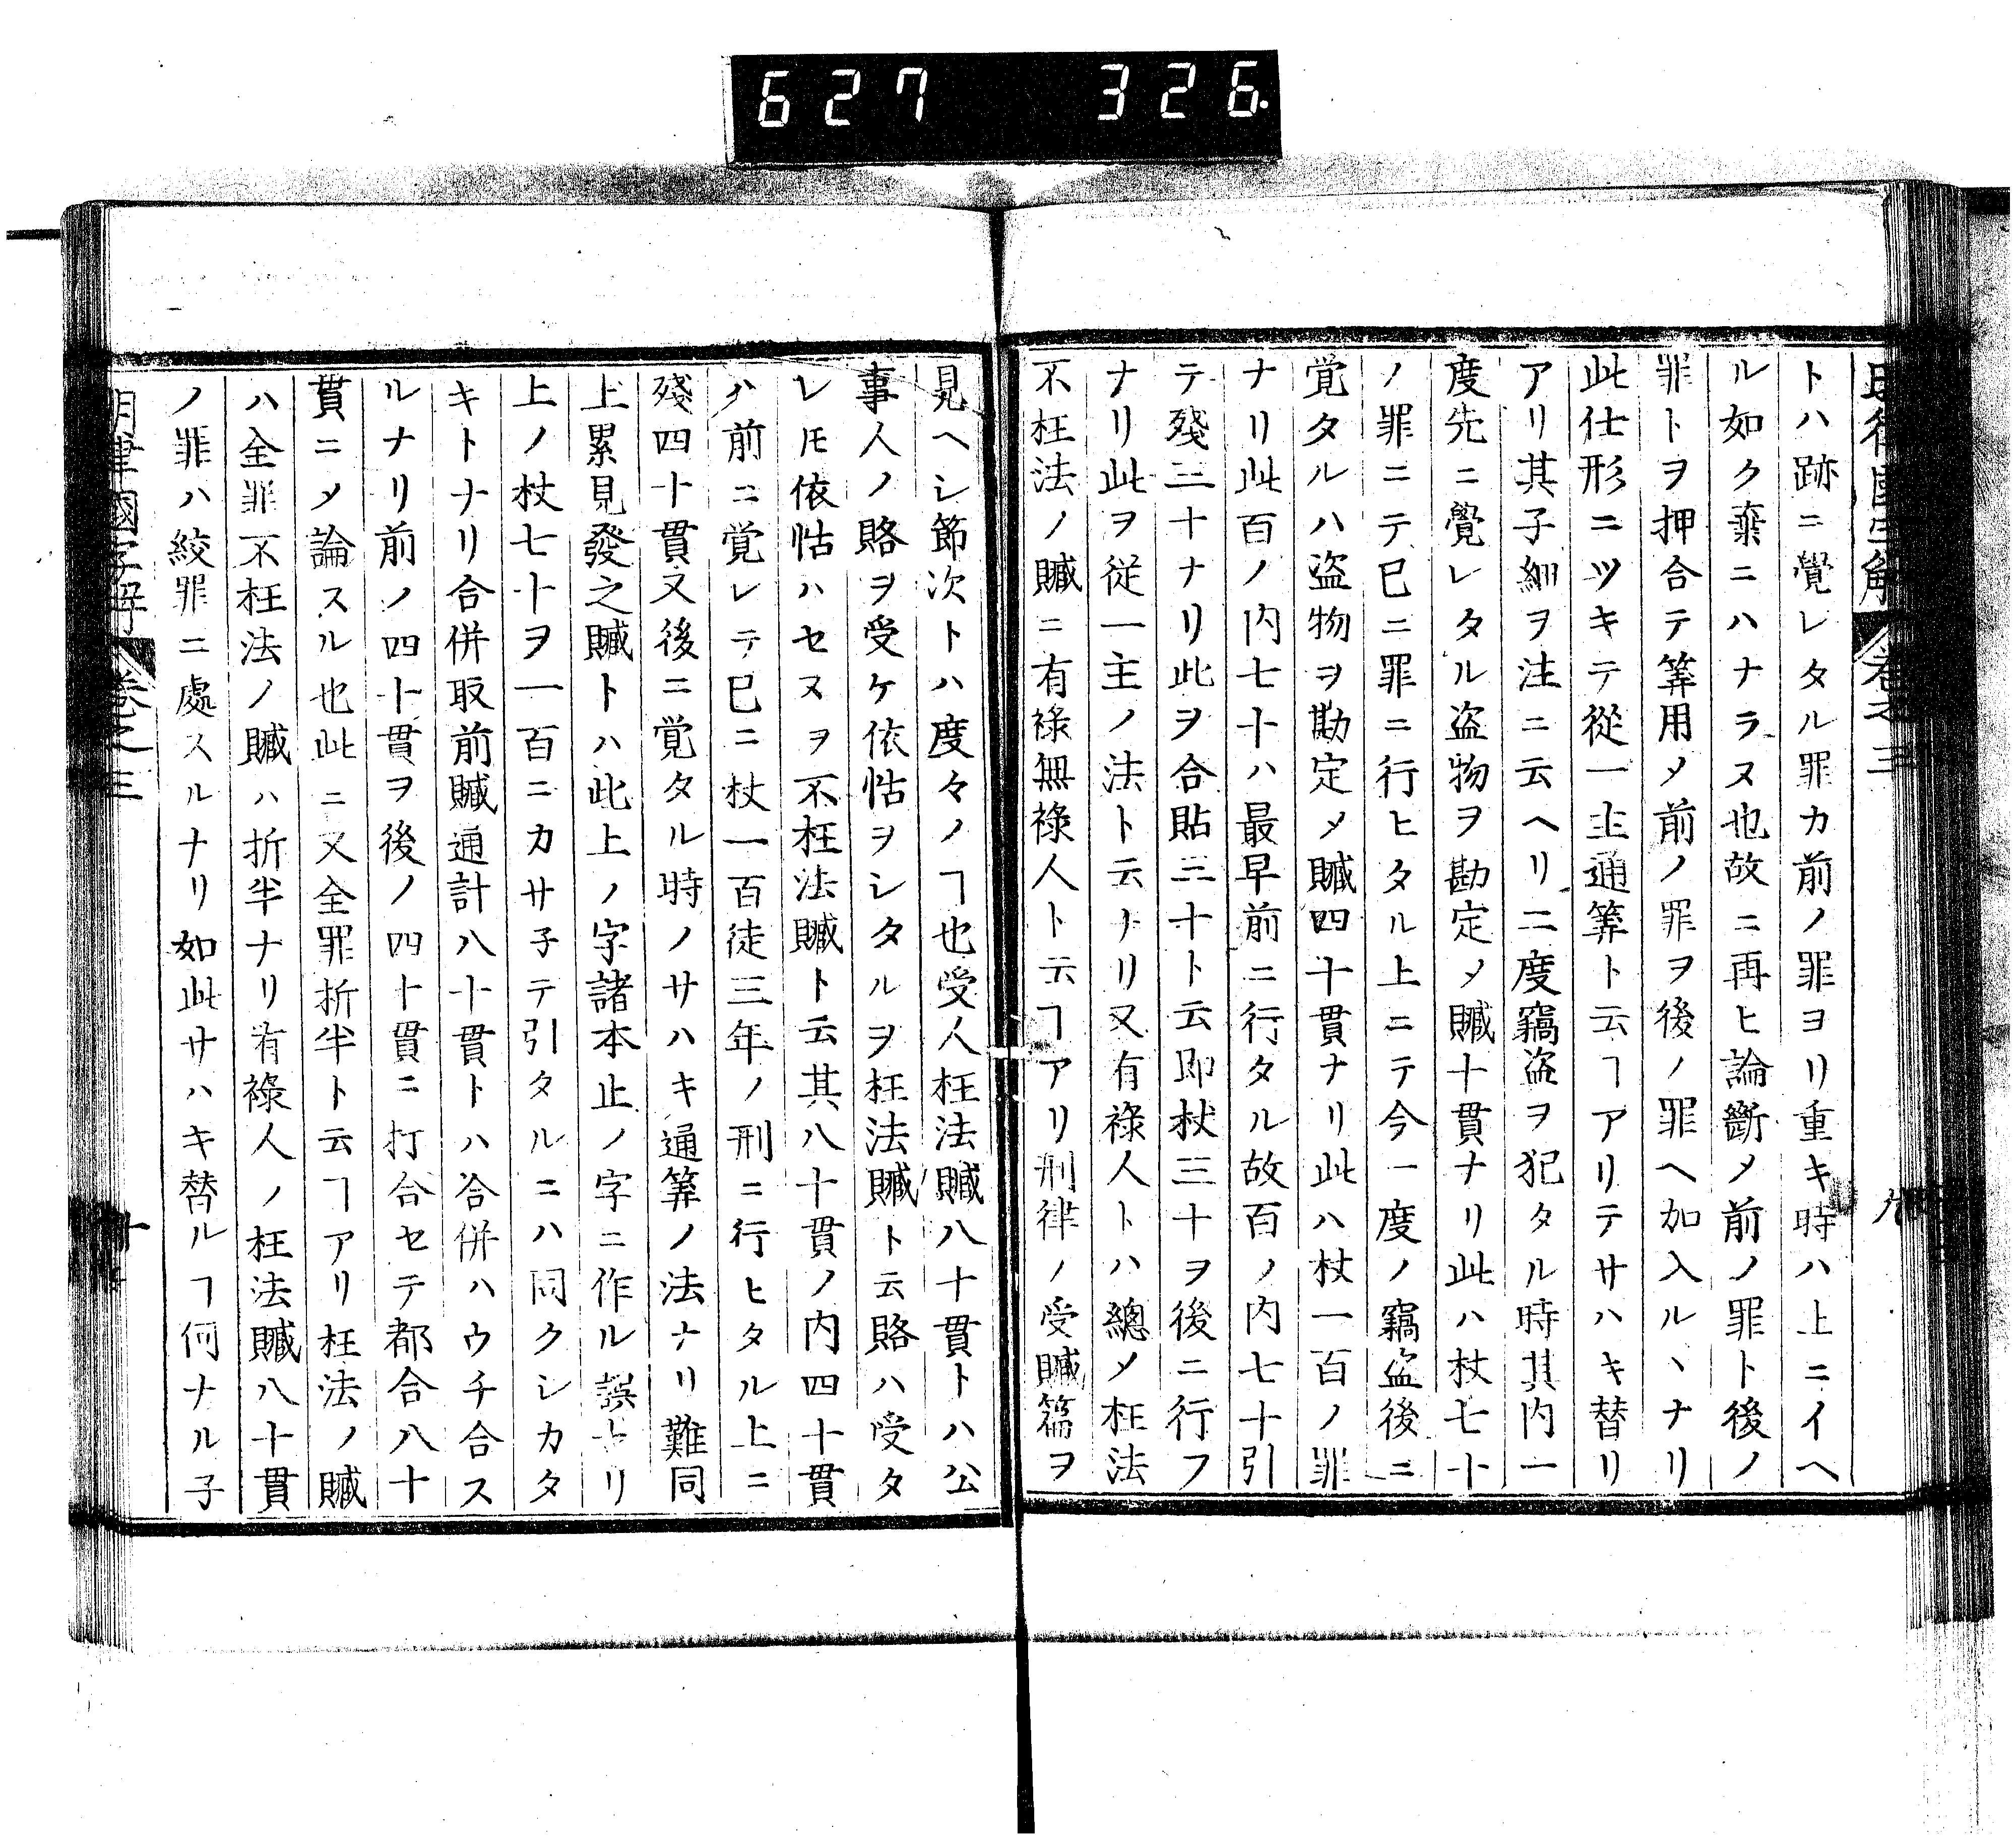 627 326.
明律國字解 卷之三 九
トハ跡ニ覺レタル罪カ前ノ罪ヨリ重キ時ハ上ニイヘ
ル如ク棄ニハナラヌ也故ニ再ヒ論斷〆前ノ罪ト後ノ
罪トヲ押合テ筭用〆前ノ罪ヲ後ノ罪ヘ加入ルヽナリ
此仕形ニツキテ從一主通筭ト云ヿアリテサハキ替リ
アリ其子細ヲ注ニ云ヘリ二度竊盗ヲ犯タル時其内一
度先ニ覺レタル盗物ヲ勘定〆贓十貫ナリ此ハ杖七十
ノ罪ニテ已ニ罪ニ行ヒタル上ニテ今一度ノ竊盗後ニ
覚タルハ盗物ヲ勘定〆贓四十貫ナリ此ハ杖一百ノ罪
ナリ此百ノ内七十ハ最早前ニ行タル故百ノ内七十引
テ殘三十ナリ此ヲ合貼三十ト云即杖三十ヲ後ニ行フ
ナリ此ヲ従一主ノ法ト云ナリ又有祿人トハ總〆枉法
不枉法ノ贓ニ有祿無祿人ト云ヿアリ刑律ノ受贓篇ヲ
見ヘシ節次トハ度々ノヿ也受人枉法贓八十貫トハ公
事人ノ賂ヲ受ケ依怙ヲシタルヲ枉法贓ト云賂ハ受タ
レ𪜈依怙ハセヌヲ不枉法贓ト云其八十貫ノ内四十貫
ハ前ニ覚レテ已ニ杖一百徒三年ノ刑ニ行ヒタル上ニ
殘四十貫又後ニ覚タル時ノサハキ通筭ノ法ナリ難同
上累見發之贓トハ此上ノ字諸本止ノ字ニ作ル誤ナリ
上ノ杖七十ヲ一百ニカサ子テ引タルニハ同クシカタ
キトナリ合併取前贓通計八十貫トハ合併ハウチ合ス
ルナリ前ノ四十貫ヲ後ノ四十貫ニ打合セテ都合八十
貫ニ〆論スル也此ニ又全罪折半ト云ヿアリ枉法ノ贓
ハ全罪不枉法ノ贓ハ折半ナリ有祿人ノ枉法贓八十貫
ノ罪ハ絞罪ニ處スルナリ如此サハキ替ルヿ何ナル子
明律國字解 卷之三 十